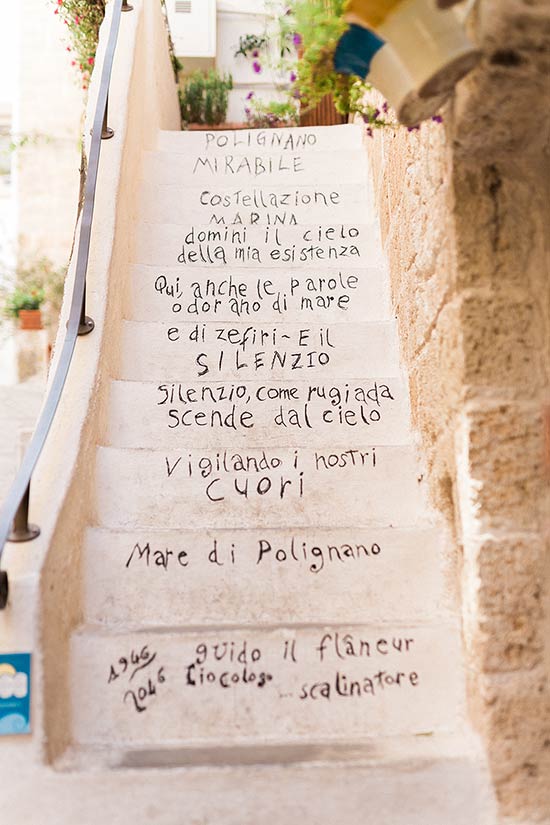 POLIGNANO
MIRABILE
Costellazione
MARINA
domini il cielo
della mia esistenza
Qui, anche le parole
odorano di mare
e di zefiri- E il
SILENZIO
Silenzio, come rugiada
scende dal cielo
Vigilando i nostri
cuori
Mare di Polignano
1946 guido il flâneur
2046 Ciocologo ...scalinatore